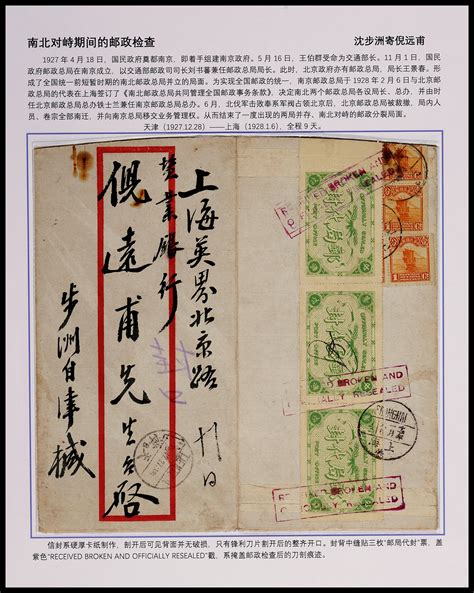 南北对峙期间的邮政检查
沈步洲寄倪远甫
1927年4月18日，国民政府奠都南京，即着手组建南京政府。5月16日，王伯群受命为交通部长。11月1日，国民
政府邮政总局在南京成立，以交通部邮政司司长刘书蕃兼任邮政总局局长。此时，北京政府亦有邮政总局，局长王景春。形
成了全国统一前短暂时期的南北邮政总局并立的局面。为实现全国邮政的统一，南京邮政总局于1928年2月6日与北京邮政
总局的代表在上海签订了《南北邮政总局共同管理全国邮政事务条款》，决定南北两个邮政总局各设局长、总办，并由时
任北京邮政总局总办铁士兰兼任南京邮政总局总办。6月，北伐军击败奉系军阀占领北京后，北京邮政总局被裁撤，局内人
员、卷宗全部南迁，并向南京总局移交业务管理权。从而结束了一度出现的两局并存、南北对峙的邮政分裂局面。
天津（1927.12.28）——上海（1928.1.6），全程9天。
上海英界北京路
业银行
倪远甫先生台启
步洲自津缄
RECEIVED BROKEN AND
OFFICIALLY RESEALED
OFFICIALLY SEALED
郵局代封
POST OFFICE
OFFICIALLY SEALED
郵局代封
POST OFFICE
RECEIVED BROKEN AND
OFFICIALLY RESEALED
OFFICIALLY SEALED
郵局代封
POST OFFICE
RECEIVED BROKEN AND
OFFICIALLY RESEALED
SHANGHAI
信封系硬厚卡纸制作，剖开后可见背面并无破损，只有锋利刀片割开后的整齐开口。封背中缝贴三枚“邮局代封”票，盖
紫色“RECEIVED BROKEN AND OFFICIALLY RESEALED”戳，系掩盖邮政检查后的刀剖痕迹。